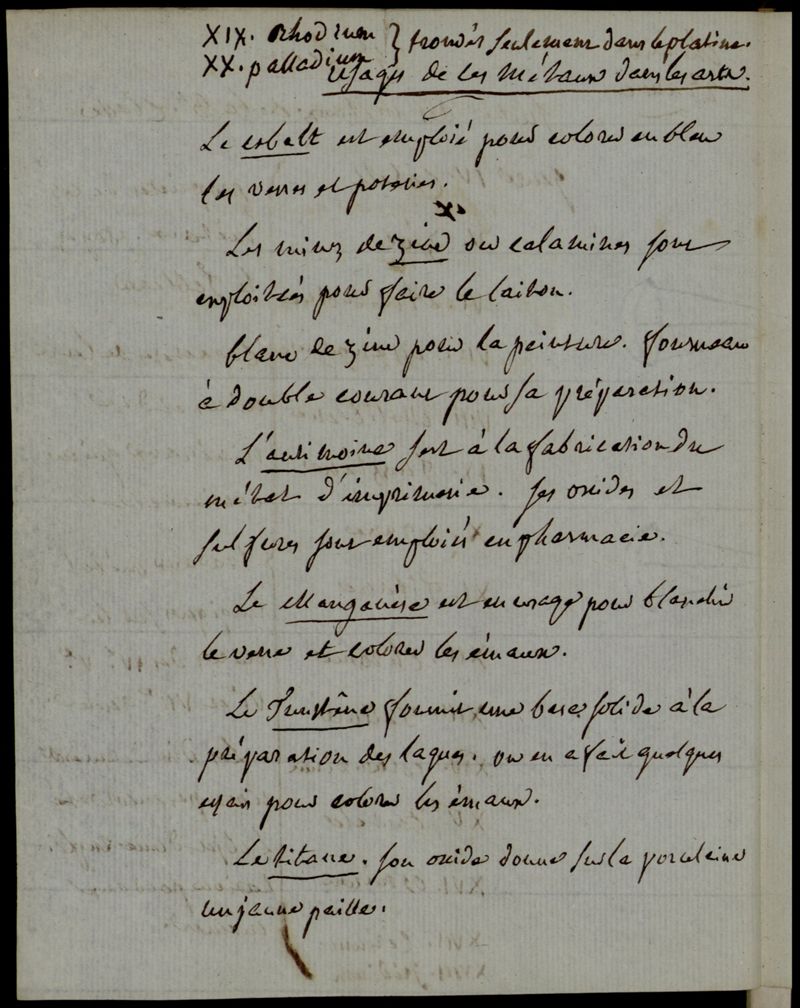 XIX. Rhodium
XX. palladium } trouvés seulement dans le platine.
usages de ces Métaux dans les arts.
Le cobalt est emploié pour colorer en bleu
les verres et poteries.
Les mines de zinc ou calamines sont
exploitées pour faire le laiton.
blanc de zinc pour la peinture. fourneau
à double courant pour sa préparation.
L'antimoine sert à la fabrication du
métal d'imprimerie. ses oxides et
sulfures sont emploiés en pharmacie.
Le Manganèse est en usage pour blanchir
le verre et colorer les émaux.
Le Tunstène fournit une base solide à la
préparation des laques. on en a fait quelques
essais pour colorer les émaux.
Le titane. son oxide donne sur la porcelaine
un jaune paille.